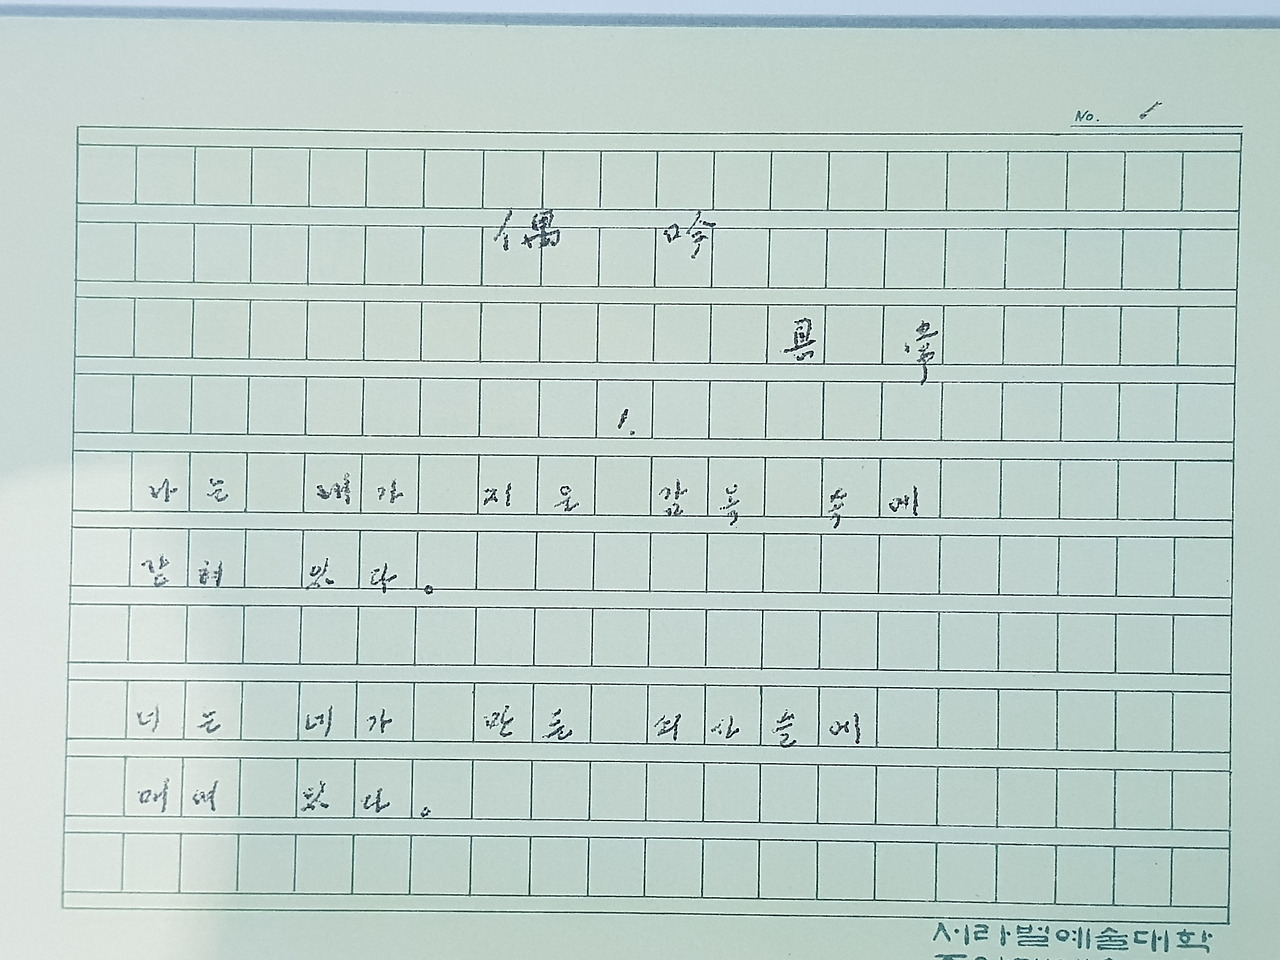 No. 1
偶 吟
具 常
1.
나는 내가 지은 감옥 속에
갇혀 있다.
너는 네가 만든 쇠사슬에
매여 있다.
서라벌예술대학